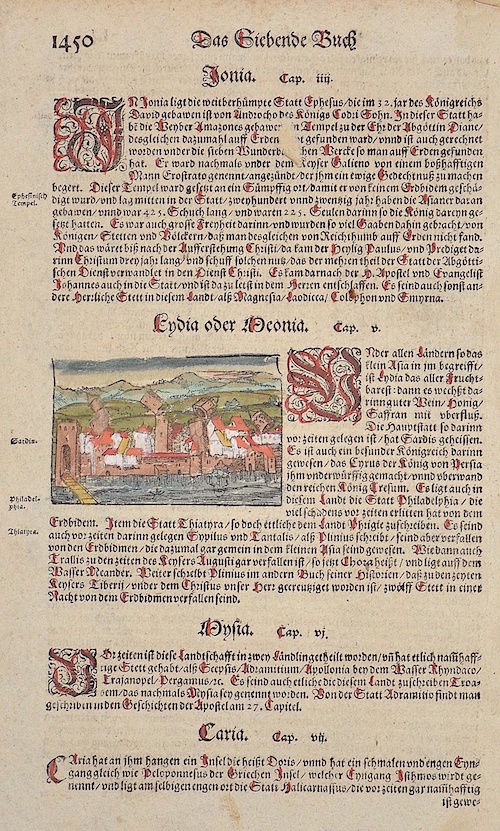 1450
Das Siebende Buch
Jonia. Cap. iiij.
IN Jonia ligt die weitberhümpte Statt Ephesus/die im 32. jar des Königreichs
David gebawen ist von Androcho des Königs Codri Sohn. In dieser Statt ha-
bē die Weyber Amazones gebawen Tempel zu der Ehr der Abgöttin Diane/
desgleichen dazumahl auff Erden gefunden ward/vnnd ist auch gerechnet
worden vnder die sieben Wunder Werck so man auff Erden gefunden
hat. Er ward nachmals vnder dem Keyser Galieno von einem boßhafftigen
Mann Erostrato genennt/angezündt/der jhm ein ewige Gedechtnuß zu machen
begert. Dieser Tempel ward gesetzt an ein Sümpffig ort/damit er von keinem Erdbidem geschä-
digt wurd/vnd lag mitten in der Statt/zweyhundert vnnd zwentzig jahr haben die Asianer daran
gebawen/vnnd war 425. Schuch lang/vnd waren 225. Seulen darinn so die König dareyn ge-
setzt hatten. Es war auch grosse Freyheit darinn/vnd wurden so viel Gaaben dahin gebracht/von
Königen/Stetten vnd Völckern/daß man desgleichen von Reichthumb auff Erden nicht fand.
Vnd das wäret biß nach der Aufferstehung Christi/da kam der Heylig Paulus/vnd Prediget da-
rinn Christum drey jahr lang/vnd schuff solchen nutz/das der mehren theil der Statt der Abgötti-
schen Dienst verwandlet in den Dienst Christi. Es kam darnach der H. Apostel vnd Evangelist
Johannes auch in die Statt/vnd ist da zu letst in dem Herren entschlaffen. Es seind auch sonst an-
dere Herrliche Stett in diesem Landt/alß Magnesia/Laodicea/Colophon vnd Smyrna.
Ephesinisch
Tempel.
Lydia oder Meonia. Cap. v.
VNder allen Ländern so das
klein Asia in jm begreifft/
ist Lydia das aller Frucht-
barest: dann es wechßt da-
rinn guter Wein/Honig/
Saffran mit vberfluß.
Die Hauptstatt so darinn
vor zeiten gelegen ist/hat Sardis geheissen.
Es ist auch ein besunder Königreich darinn
gewesen/das Cyrus der König von Persia
jhm vnderwürffig gemacht/vnnd vberwand
den reichen König Cresum. Es ligt auch in
diesem Landt die Statt Philadelphia/die
viel schadens vor zeiten erlitten hat von dem
Sardis.
Philadel-
phia.
Thiatyra.
Erdbidem. Item die Statt Thiatyra/so doch ettliche dem Landt Phrigie zuschreiben. Es seind
auch vor zeiten darinn gelegen Sypilus vnd Tantalis/alß Plinius schreibt/seind aber verfallen
von den Erdbidmen/die dazumal gar gemein in dem kleinen Asia seind gewesen. Wie dann auch
Trallis zu den zeiten des Keysers Augusti gar verfallen ist/so jetzt Chora heißt/vnd ligt auff dem
Wasser Meander. Weiter schreibt Plinius im andern Buch seiner Historien/daß zu den zeyten
Keysers Tiberij/vnder dem Christus vnser Herr gecreutziget worden ist/zwölff Stett in einer
Nacht von dem Erdbidmen verfallen seind.
Mysia. Cap. vj.
VOr zeiten ist diese Landtschafft in zwey Ländlin getheilt worden/vñ hat etlich namhaff-
tige Stett gehabt/alß Scepsis/Adramitium/Apollonia bey dem Wasser Rhyndaco/
Trajanopel/Pergamus/ꝛc. Es seind auch etliche die diesem Landt zuschreiben Troa-
sem/das nachmals Mysia sey genennt worden. Von der Statt Adramitio findt man
geschriben in den Geschichten der Apostel am 27. Capitel.
Caria. Cap. vij.
CAria hat an jhm hangen ein Insel die heißt Doris/vnnd hat ein schmalen vnd engen Eyn-
gang gleich wie Peloponnesus der Griechen Insel/welcher Eyngang Isthmos wirdt ge-
nennt/vnd ligt am selbigen engen ort die Statt Halicarnassus/die vor zeiten gar namhafftig
ist gewe-